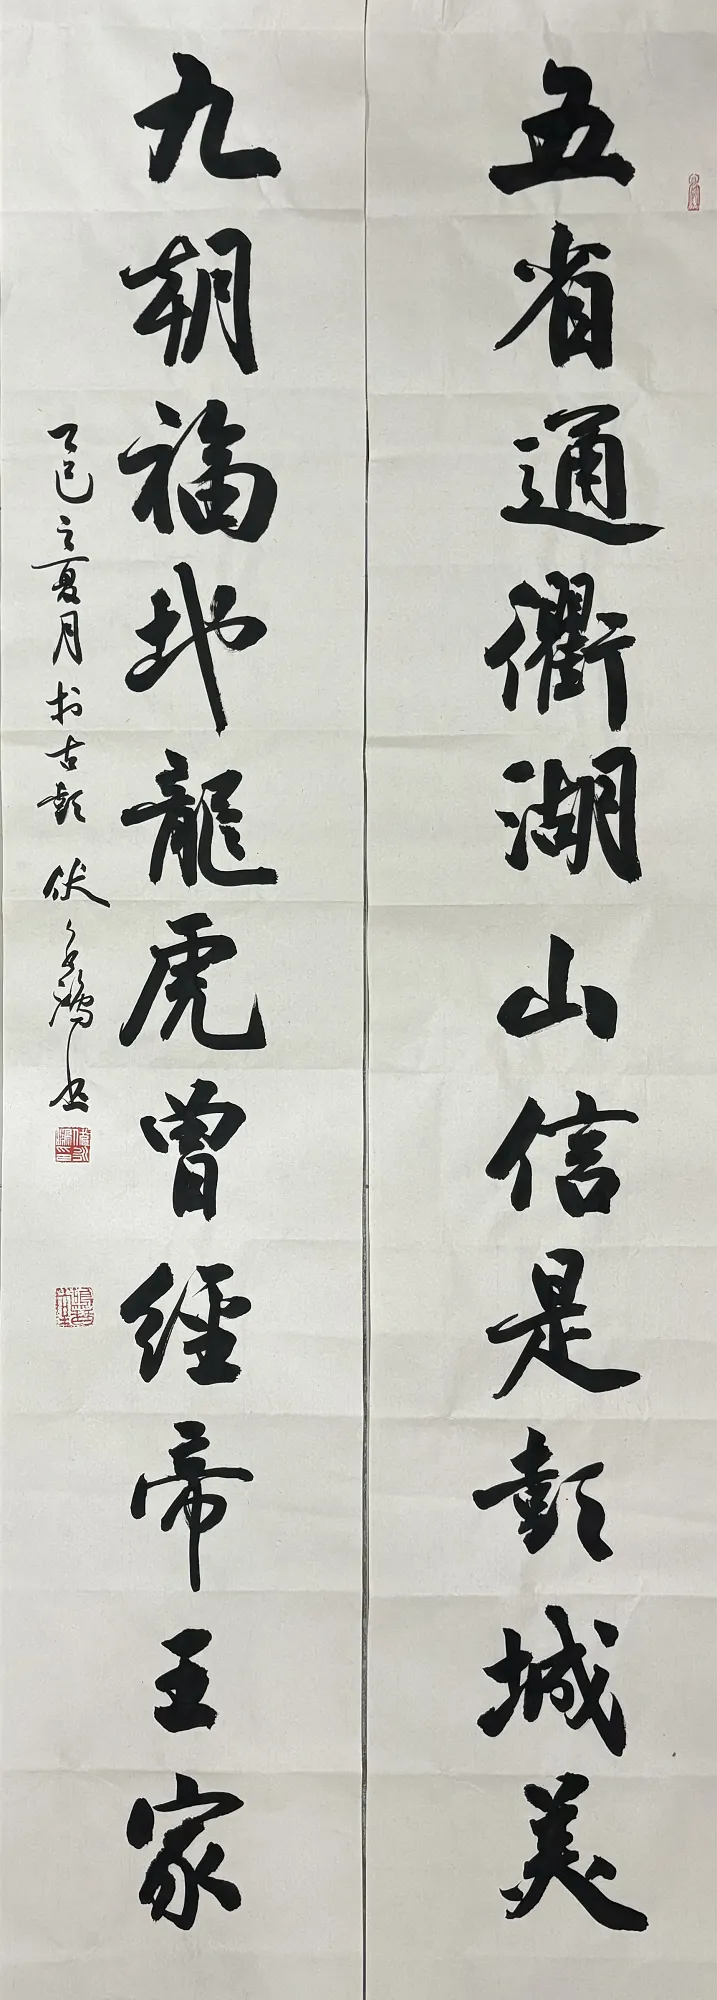 五省通衢湖山信是彭城美
九朝福地龍虎曾經帝王家
乙巳之夏月於古彭 伏 鴻书